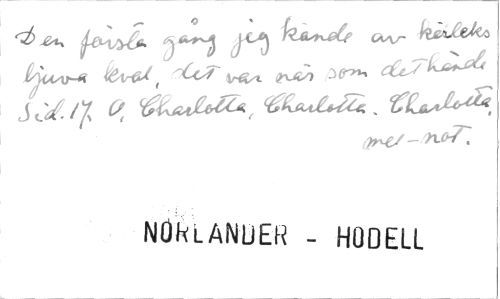 Den första gång jeg kände av kärleks
ljuva kval, det var när som det hände
Sid. 17. O, Charlotta, Charlotta. Charlotta.
mel-not.
NORLANDER - HODELL